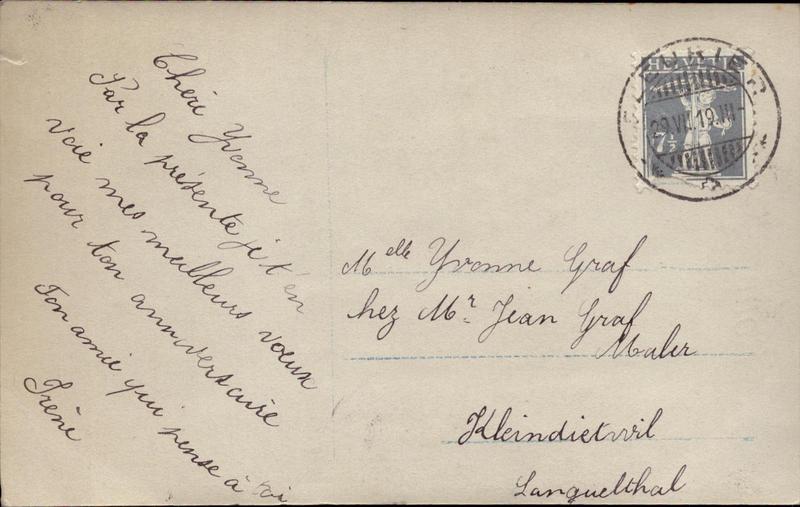 Chèri Yvonne
Par la présente je t'en
voie mes meilleurs vœux
pour ton anniversaire
Ton amie qui pense à toi
Irène
HELVETIA
7½
29.VII.19.VII-
Melle Yvonne Graf
hez Mr. Jean Graf
Maler
Kleindietwil
Languelthal